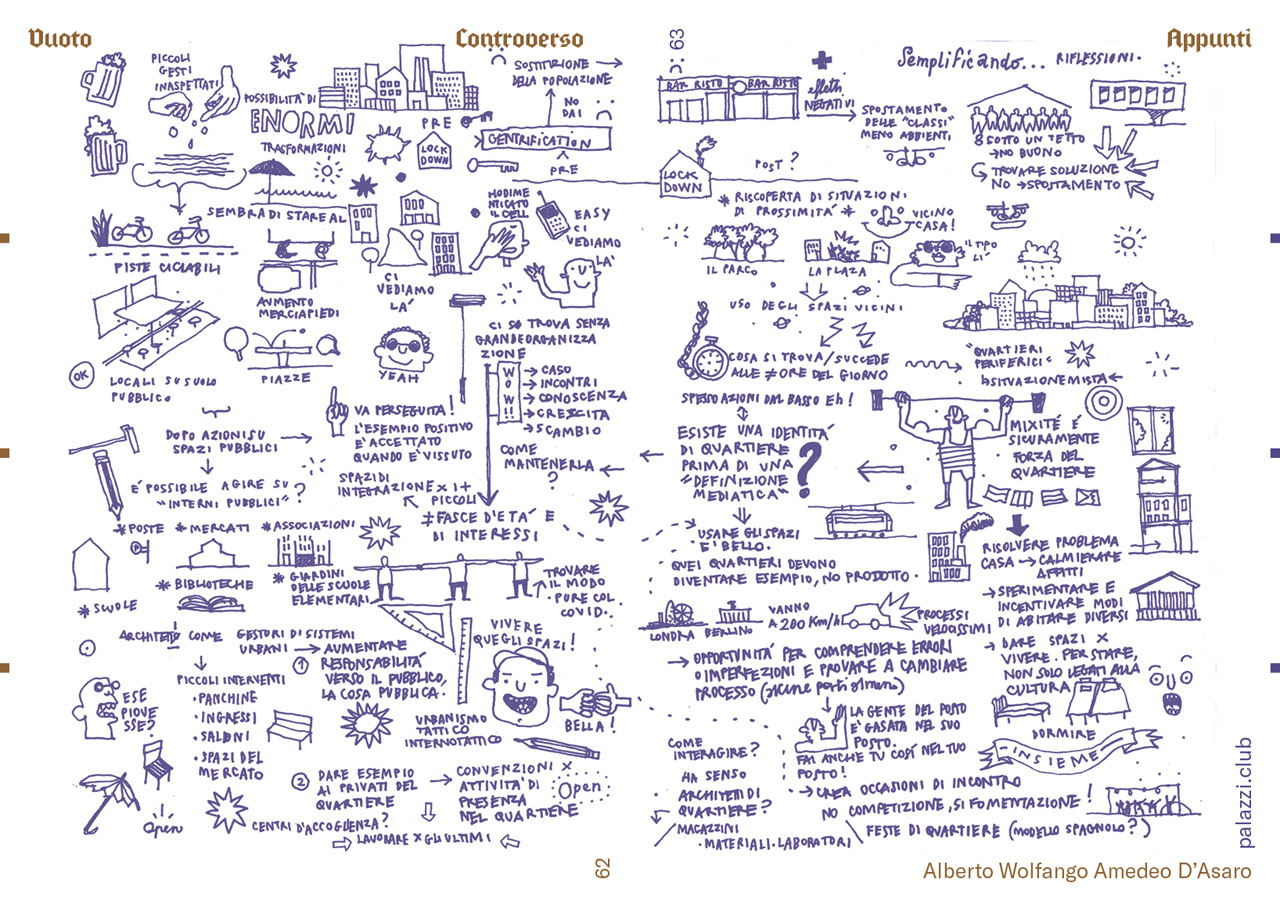 Vuoto
Controverso
63
Appunti
PICCOLI
GESTI
INASPETTATI
POSSIBILITÀ DI
ENORMI
TRASFORMAZIONI
PRE
LOCK
DOWN
SOSTITUZIONE
DELLA POPOLAZIONE
NO
DAI
GENTRIFICATION
PRE
SEMBRA DI STARE AL
HO DIME
NTICATO
IL CELL
EASY
CI
VEDIAMO
LA'
PISTE CICLABILI
AUMENTO
MERCIAPIEDI
CI
VEDIAMO
LA'
OK
LOCALI SU SUOLO
PUBBLICO
PIAZZE
YEAH
CI SO TROVA SENZA
GRANDE ORGANIZZA
ZIONE
WOW!!
CASO
INCONTRI
CONOSCENZA
CRESCITA
SCAMBIO
VA PERSEGUITA!
L'ESEMPIO POSITIVO
E' ACCETTATO
QUANDO E' VISSUTO
COME
MANTENERLA
?
DOPO AZIONI SU
SPAZI PUBBLICI
E' POSSIBILE AGIRE SU
"INTERNI PUBBLICI"?
SPAZI DI
INTEGRAZIONE X I +
PICCOLI
≠ FASCE D'ETA' E
DI INTERESSI
* POSTE * MERCATI * ASSOCIAZIONI
* BIBLIOTECHE
* GIARDINI
DELLE SCUOLE
ELEMENTARI
* SCUOLE
TROVARE
IL MODO
PURE COL
COVID.
ARCHITETTI COME GESTORI DI SISTEMI
URBANI → AUMENTARE
① RESPONSABILITA'
VERSO IL PUBBLICO,
LA COSA PUBBLICA.
VIVERE
QUEGLI SPAZI!
ESE
PIOVE
SSE?
PICCOLI INTERVENTI
• PANCHINE
• INGRESSI
• SALONI
• SPAZI DEL
MERCATO
URBANISMO
TATTICO
INTERNOTATTICO
BELLA!
② DARE ESEMPIO
AI PRIVATI DEL
QUARTIERE
→ CONVENZIONI X
ATTIVITA' DI
PRESENZA
NEL QUARTIERE
Open
Open
CENTRI D'ACCOGLIENZA?
LAVORARE X GLI ULTIMI
62
BAR RISTO BAR RISTO
effetti
NEGATIVI
SPOSTAMENTO
DELLE "CLASSI"
MENO ABBIENTI
Semplificando... RIFLESSIONI.
8 SOTTO UN TETTO
→ NO BUONO
TROVARE SOLUZIONE
NO → SPOSTAMENTO
LOCK
DOWN
POST?
* RISCOPERTA DI SITUAZIONI
DI PROSSIMITA' *
VICINO
CASA!
IL TIPO
LI'
IL PARCO
LA PLAZA
USO DEGLI SPAZI VICINI
COSA SI TROVA/SUCCEDE
ALLE ≠ ORE DEL GIORNO
"QUARTIERI
PERIFERICI"
SITUAZIONE MISTA
SPESSO AZIONI DAL BASSO Eh!
ESISTE UNA IDENTITA'
DI QUARTIERE
PRIMA DI UNA
"DEFINIZIONE
MEDIATICA"
?
MIXITÉ É
SICURAMENTE
FORZA DEL
QUARTIERE
USARE GLI SPAZI
E' BELLO.
QUEI QUARTIERI DEVONO
DIVENTARE ESEMPIO, NO PRODOTTO.
RISOLVERE PROBLEMA
CASA → CALMIERARE
AFFITTI
→ SPERIMENTARE E
INCENTIVARE MODI
DI ABITARE DIVERSI
LONDRA BERLINO
VANNO
A 200 Km/h
PROCESSI
VELOCISSIMI
→ DARE SPAZI X
VIVERE. PER STARE,
NON SOLO LEGATI ALLA
CULTURA
→ OPPORTUNITA' PER COMPRENDERE ERRORI
O IMPERFEZIONI E PROVARE A CAMBIARE
PROCESSO (alcune parti almeno)
LA GENTE DEL POSTO
E' GASATA NEL SUO
POSTO.
FAI ANCHE TU COSÍ NEL TUO
POSTO!
DORMIRE
INSIEME
COME
INTERAGIRE?
HA SENSO
ARCHITETTI DI
QUARTIERE?
MAGAZZINI
• MATERIALI • LABORATORI
→ CREA OCCASIONI DI INCONTRO
NO COMPETIZIONE, SI FOMENTAZIONE!
FESTE DI QUARTIERE (MODELLO SPAGNOLO?)
palazzi.club
Alberto Wolfango Amedeo D'Asaro